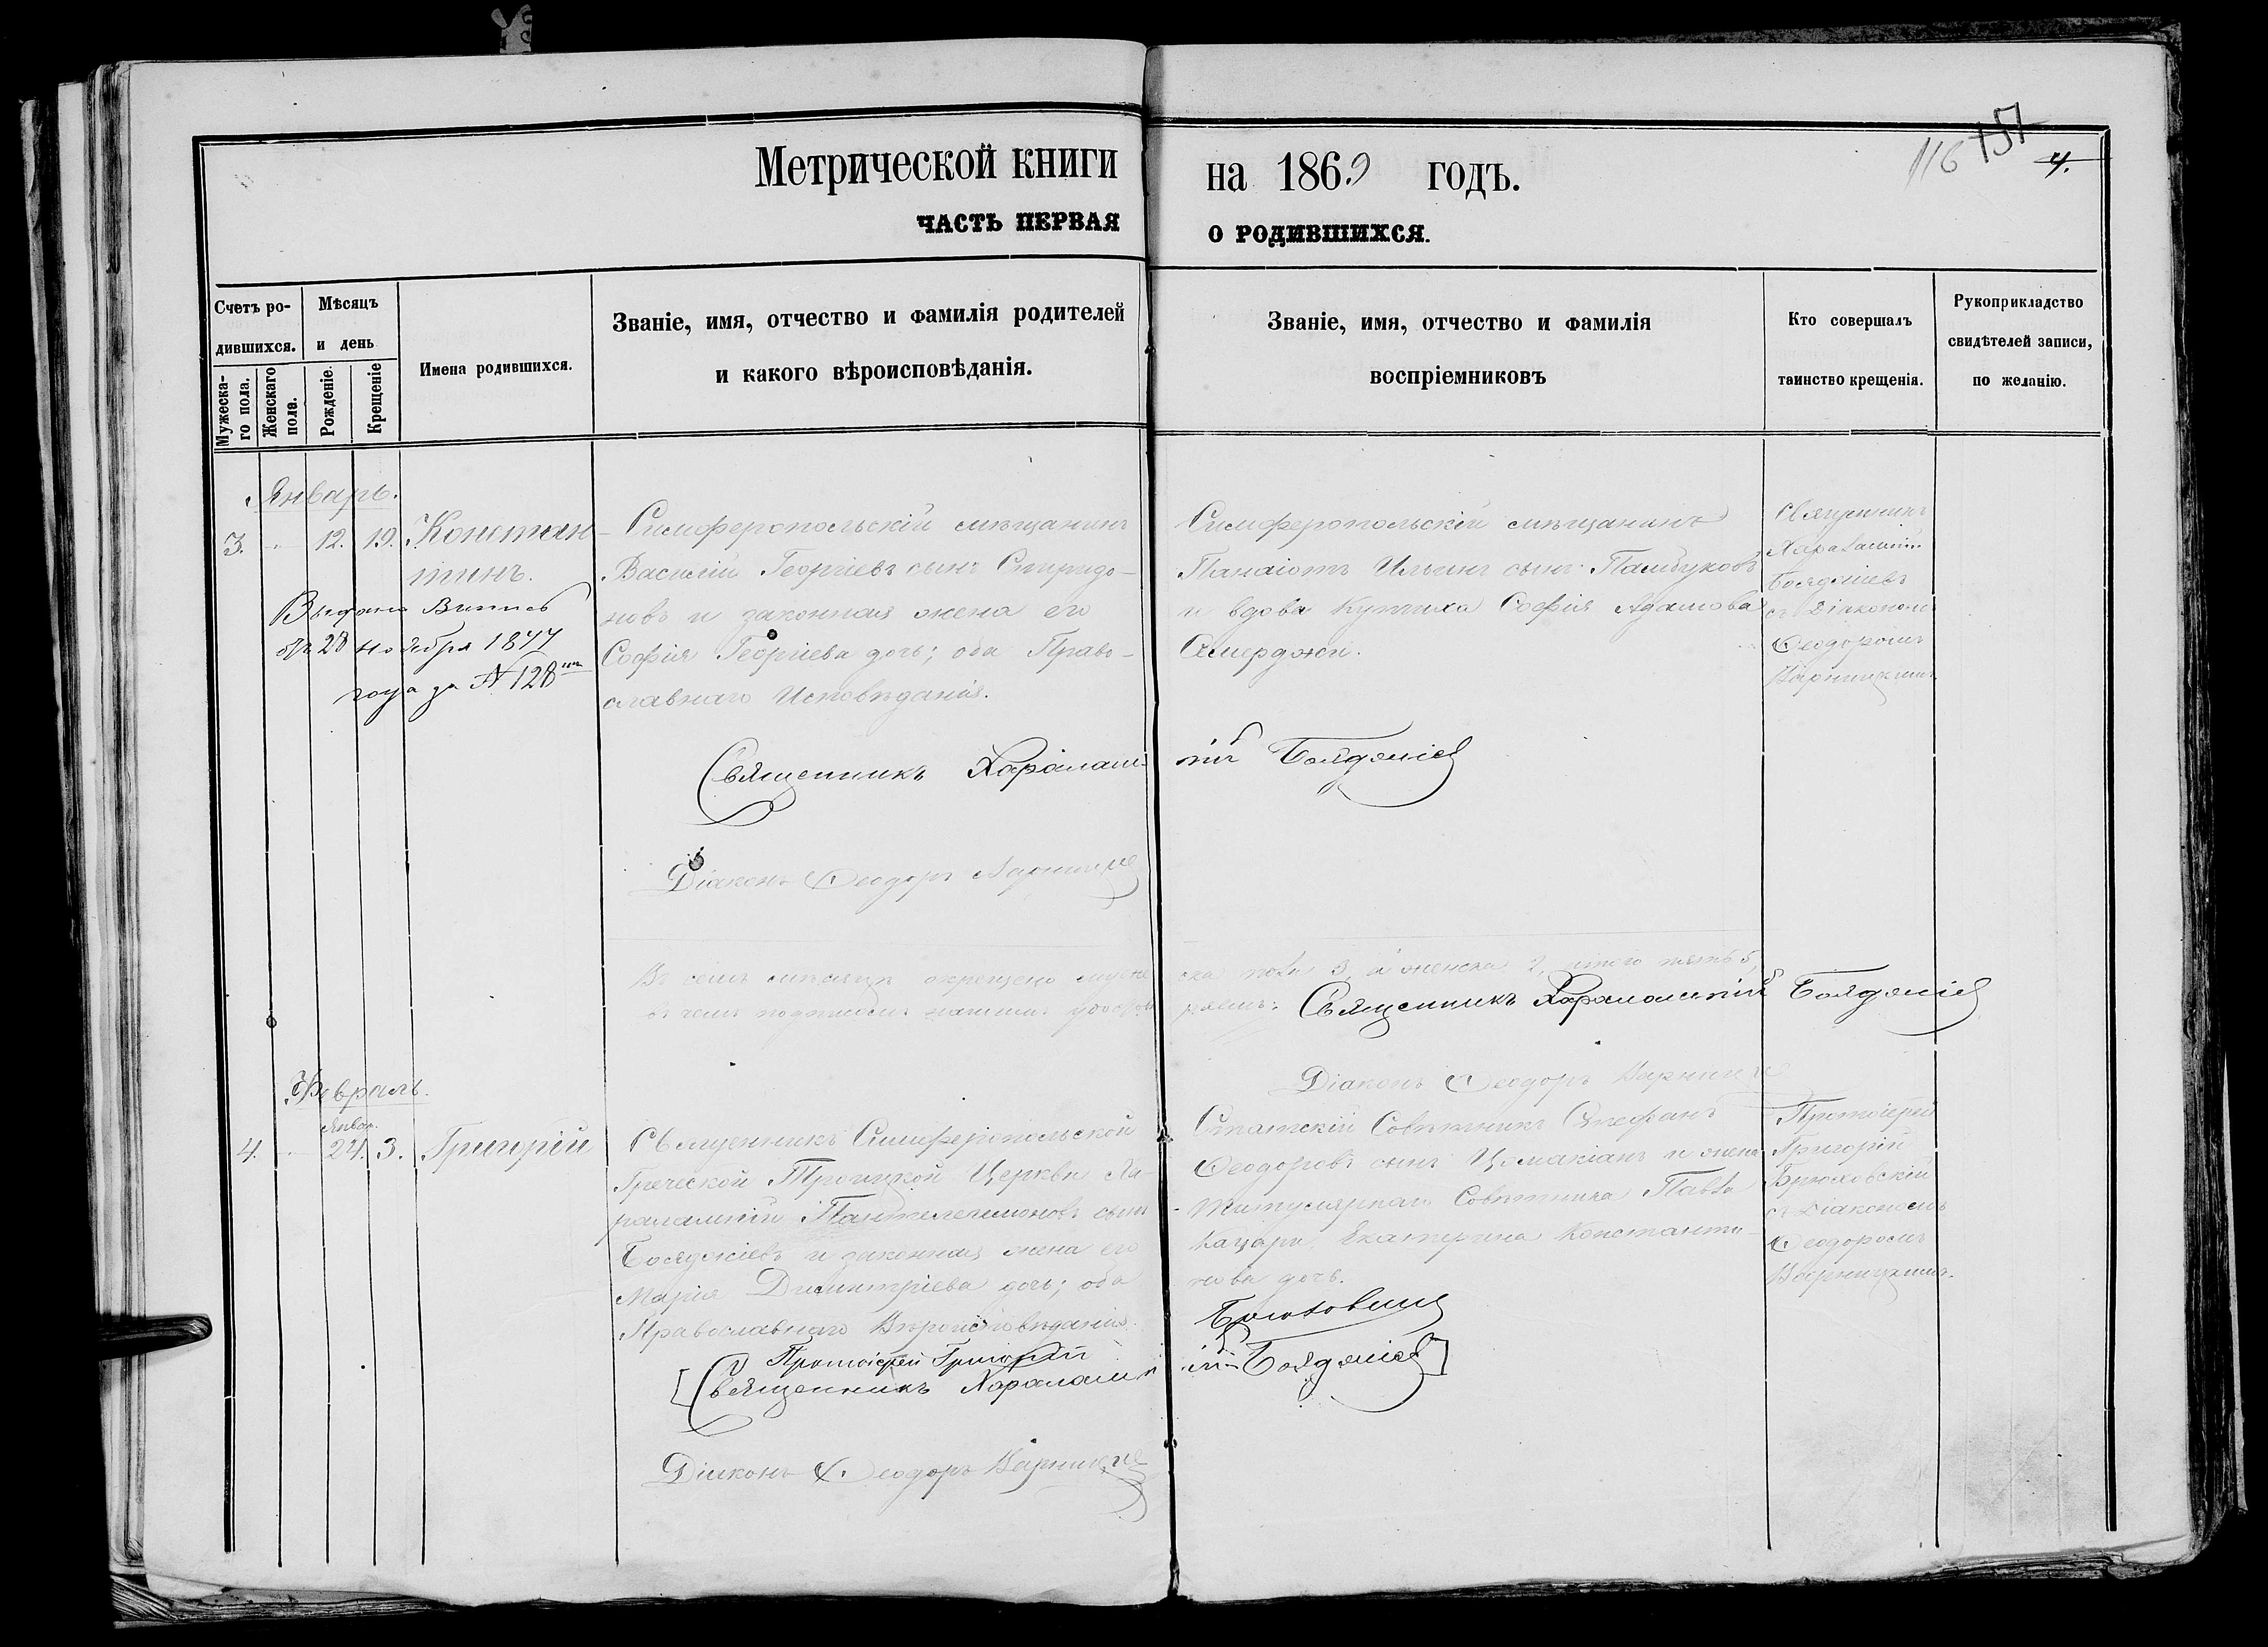 116 157 4.
Метрической книги на 1869 годъ.
ЧАСТЬ ПЕРВАЯ О РОДИВШИХСЯ.
Счетъ ро-
дившихся.
Мужеска-
го пола.
Женскаго
пола.
Мѣсяцъ
и день
Рожденіе.
Крещеніе
Имена родившихся.
Званіе, имя, отчество и фамилія родителей
и какого вѣроисповѣданія.
Званіе, имя, отчество и фамилія
воспріемниковъ
Кто совершалъ
таинство крещенія.
Рукоприкладство
свидѣтелей записи,
по желанію.
Январь.
3. 12. 19. Констан-
тинъ.
Выдана Выпись
28 ноября 1877
года за № 128
Симферопольскій мѣщанинъ
Василій Георгіевъ сынъ Спиридо-
новъ и законная жена его
Софія Георгіева дочь; оба Право-
славнаго Исповѣданія.
Симферопольскій мѣщанинъ
Панаіотъ Ильинъ сынъ Памбуковъ
и вдова Купчиха Софія Адамова
Священникъ
Харалампій
Бояджіевъ
съ Діакономъ
Ѳеодоромъ
Варницкимъ
Священникъ Харалампій Бояджіев
Діаконъ Ѳеодоръ
Въ семъ мѣсяцѣ окрещено мужеска пола 3, а женска 2, итого пять 5,
въ чемъ подписомъ нашимъ удостовѣряемъ: Священникъ Харалампій Бояджіев
Діаконъ Ѳеодоръ
Февраль.
Январ.
4. 24. 3. Григорій
Священникъ Симферопольской
Греческой Троицкой Церкви Ха-
ралампій Пантелеимоновъ сынъ
Бояджіевъ и законная жена его
Марія Димитріева дочь; оба
Православнаго Вѣроисповѣданія.
Статскій Совѣтникъ Стефанъ
Ѳеодоровъ сынъ Цомакіанъ и жена
Титулярнаго Совѣтника Павла
Кацари Екатерина Константи-
нова дочь.
Протоіерей
Григорій
Брюховскій
съ Діакономъ
Ѳеодоромъ
Варницкимъ.
Протоіерей Григорій
[Священникъ Харалампій Бояджіев]
Діаконъ Ѳеодоръ